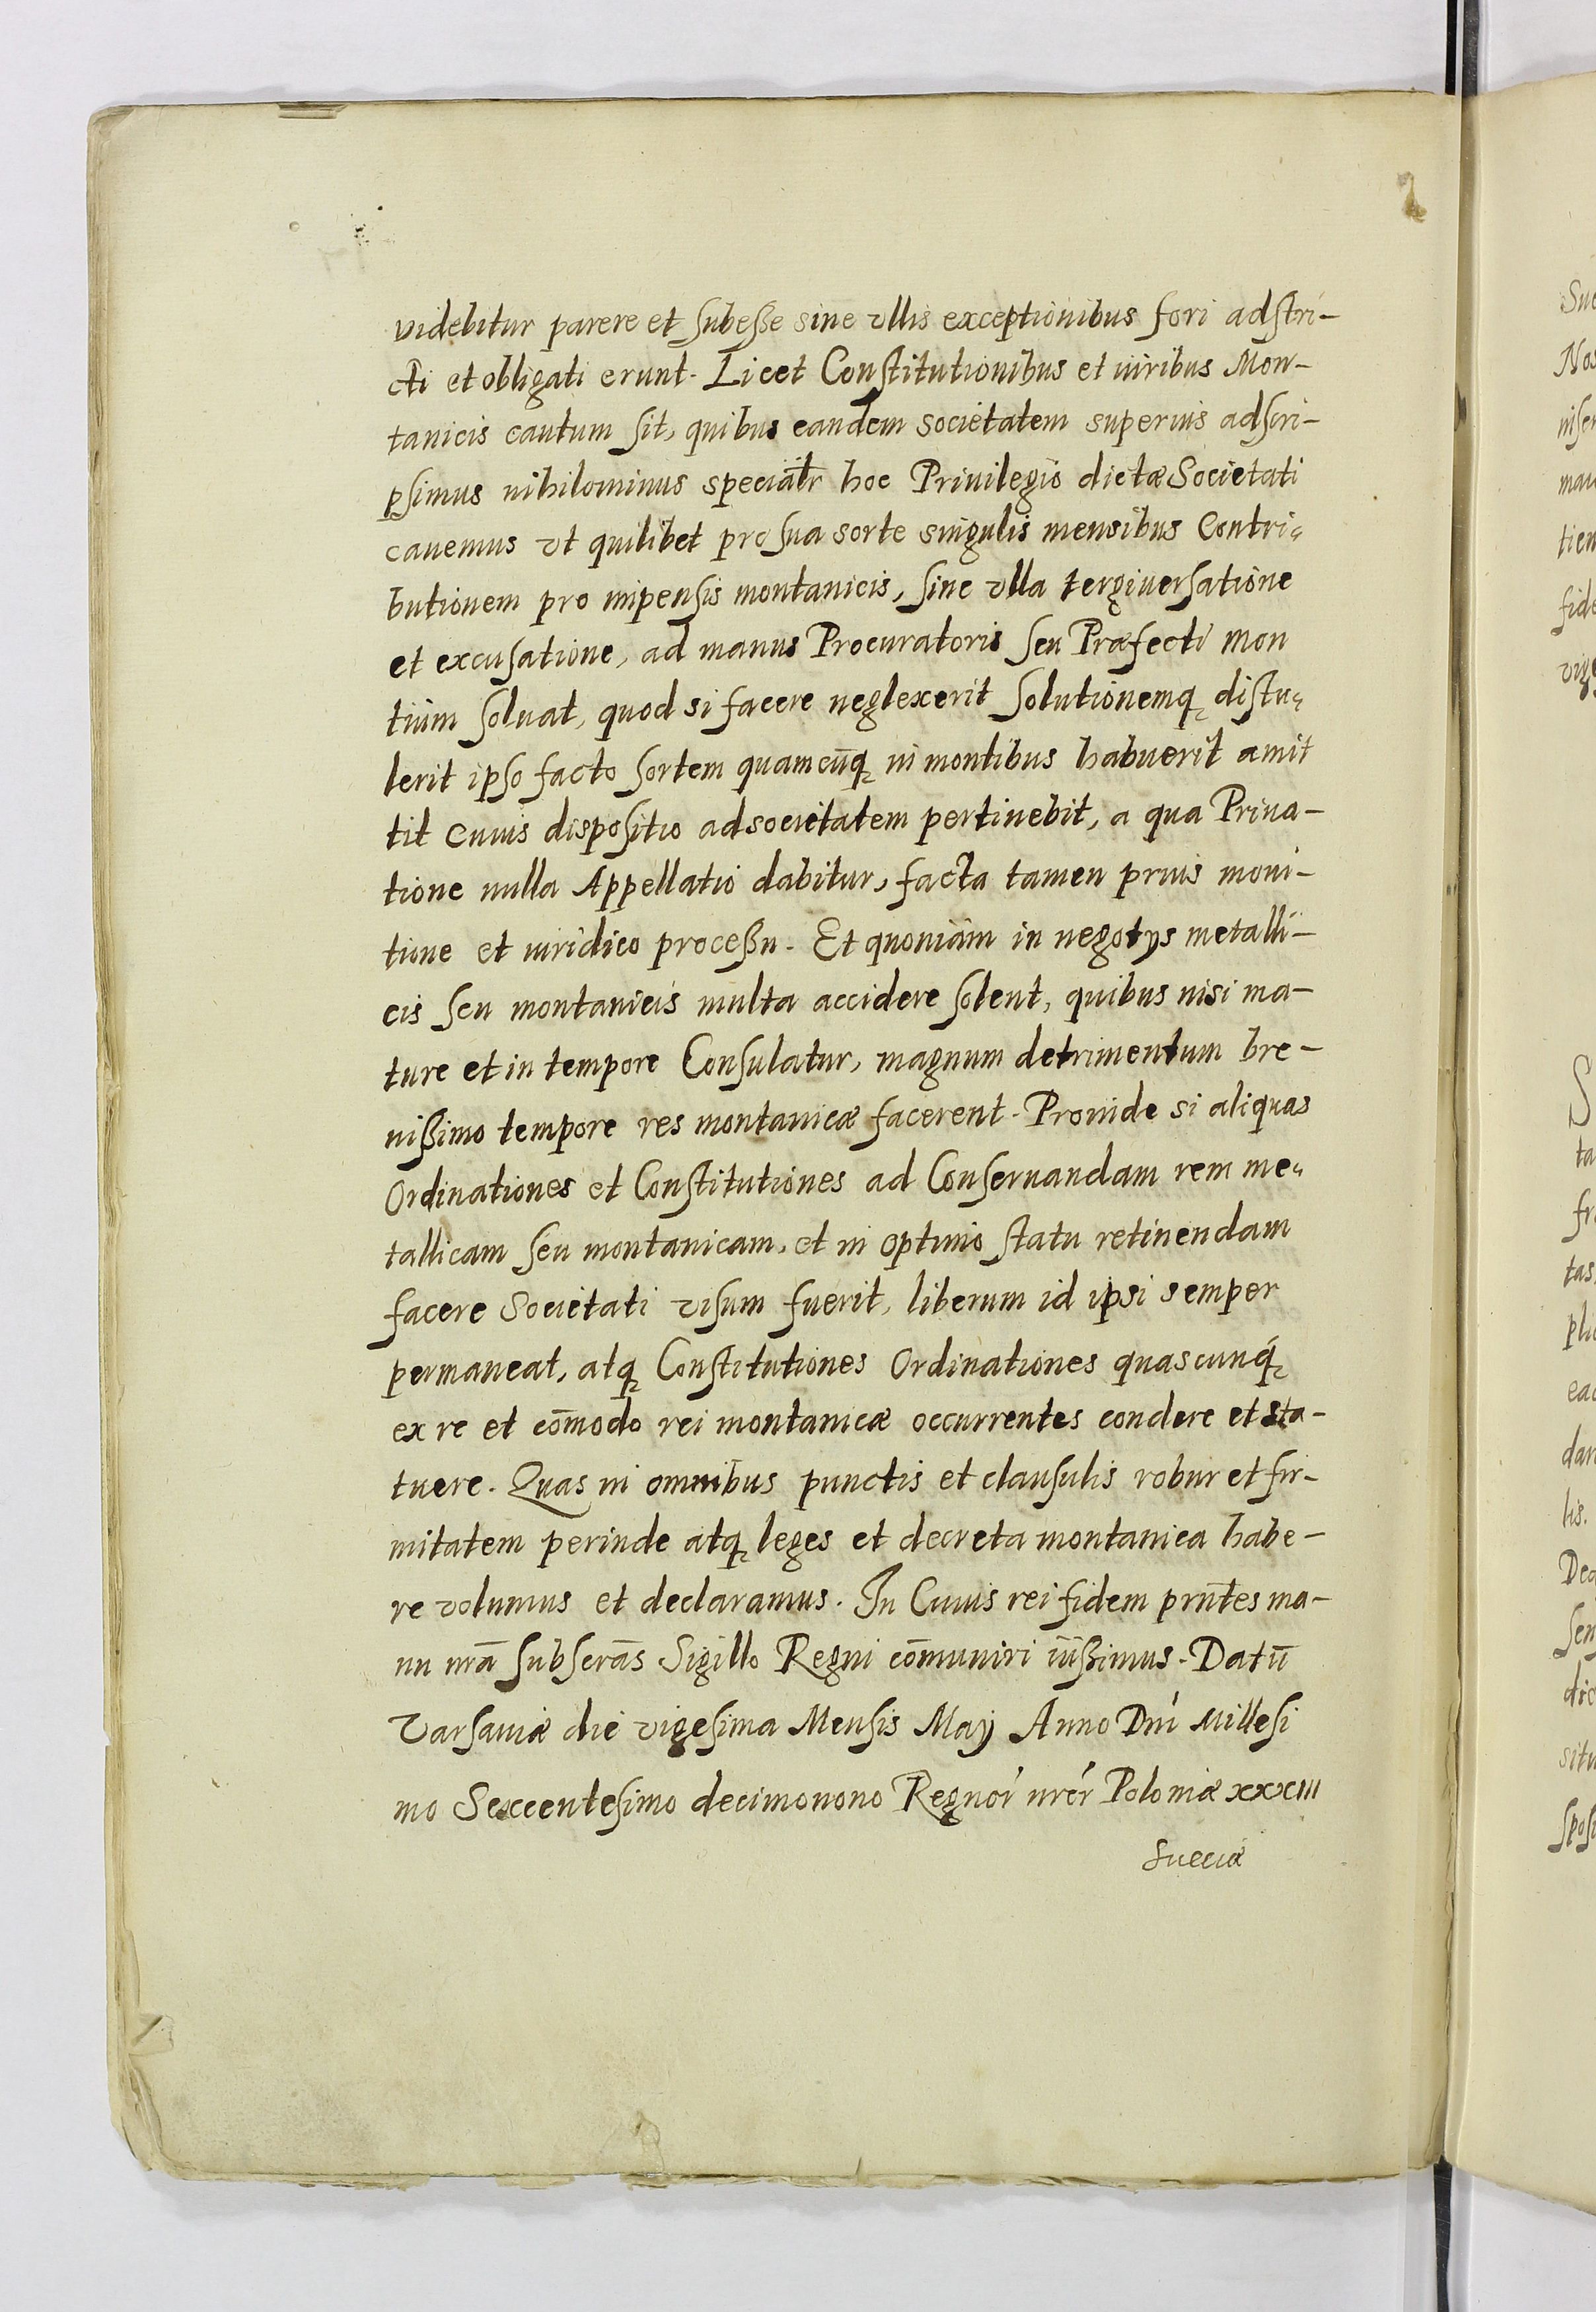 videbitur parere et subesse sine vllis exceptionibus fori adstri-
cti et obligati erunt. Licet Constitutionibus et iuribus Mon-
tanicis cautum sit, quibus eandem societatem superius adscri-
psimus nihilominus specialr hoc Priuilegio dictæ Societati
cauemus vt quilibet pro sua sorte singulis mensibus Contri-
butionem pro impensis montanicis, sine vlla tergiuersatione
et excusatione, ad manus Procuratoris seu Præfecti Mon
tium soluat, quod si facere neglexerit solutionemq distu-
lerit ipso facto sortem quamcūq in montibus habuerit amit
tit cuius dispositio ad societatem pertinebit, a qua Priua-
tione nulla Appellatio dabitur, facta tamen prius moni-
tione et iuridico processu. Et quoniam in negotys metalli-
cis seu montanicis multa accidere solent, quibus nisi ma-
ture et in tempore Consulatur, magnum detrimentum bre-
uissimo tempore res montanicæ facerent. Proinde si aliquas
Ordinationes et Constitutiones ad Conseruandam rem me-
tallicam seu montanicam, et in optimo statu retinendam
facere Societati visum fuerit, liberum id ipsi semper
permaneat, atq Constitutiones Ordinationes quascunq
ex re et cōmodo rei montanicæ occurrentes condere et sta-
tuere. Quas in omnibus punctis et clausulis robur et fir-
mitatem perinde atq leges et decreta montanica habe-
re volumus et declaramus. In Cuius rei fidem prn̄tes ma-
nu nrā subscrās Sigillo Regni cōmuniri iussimus. Datū
Varsauiæ die vigesima Mensis Maij Anno Dni Millesi
mo Sexcentesimo decimonono Regnor nror Poloniæ xxxiii
Sueciæ